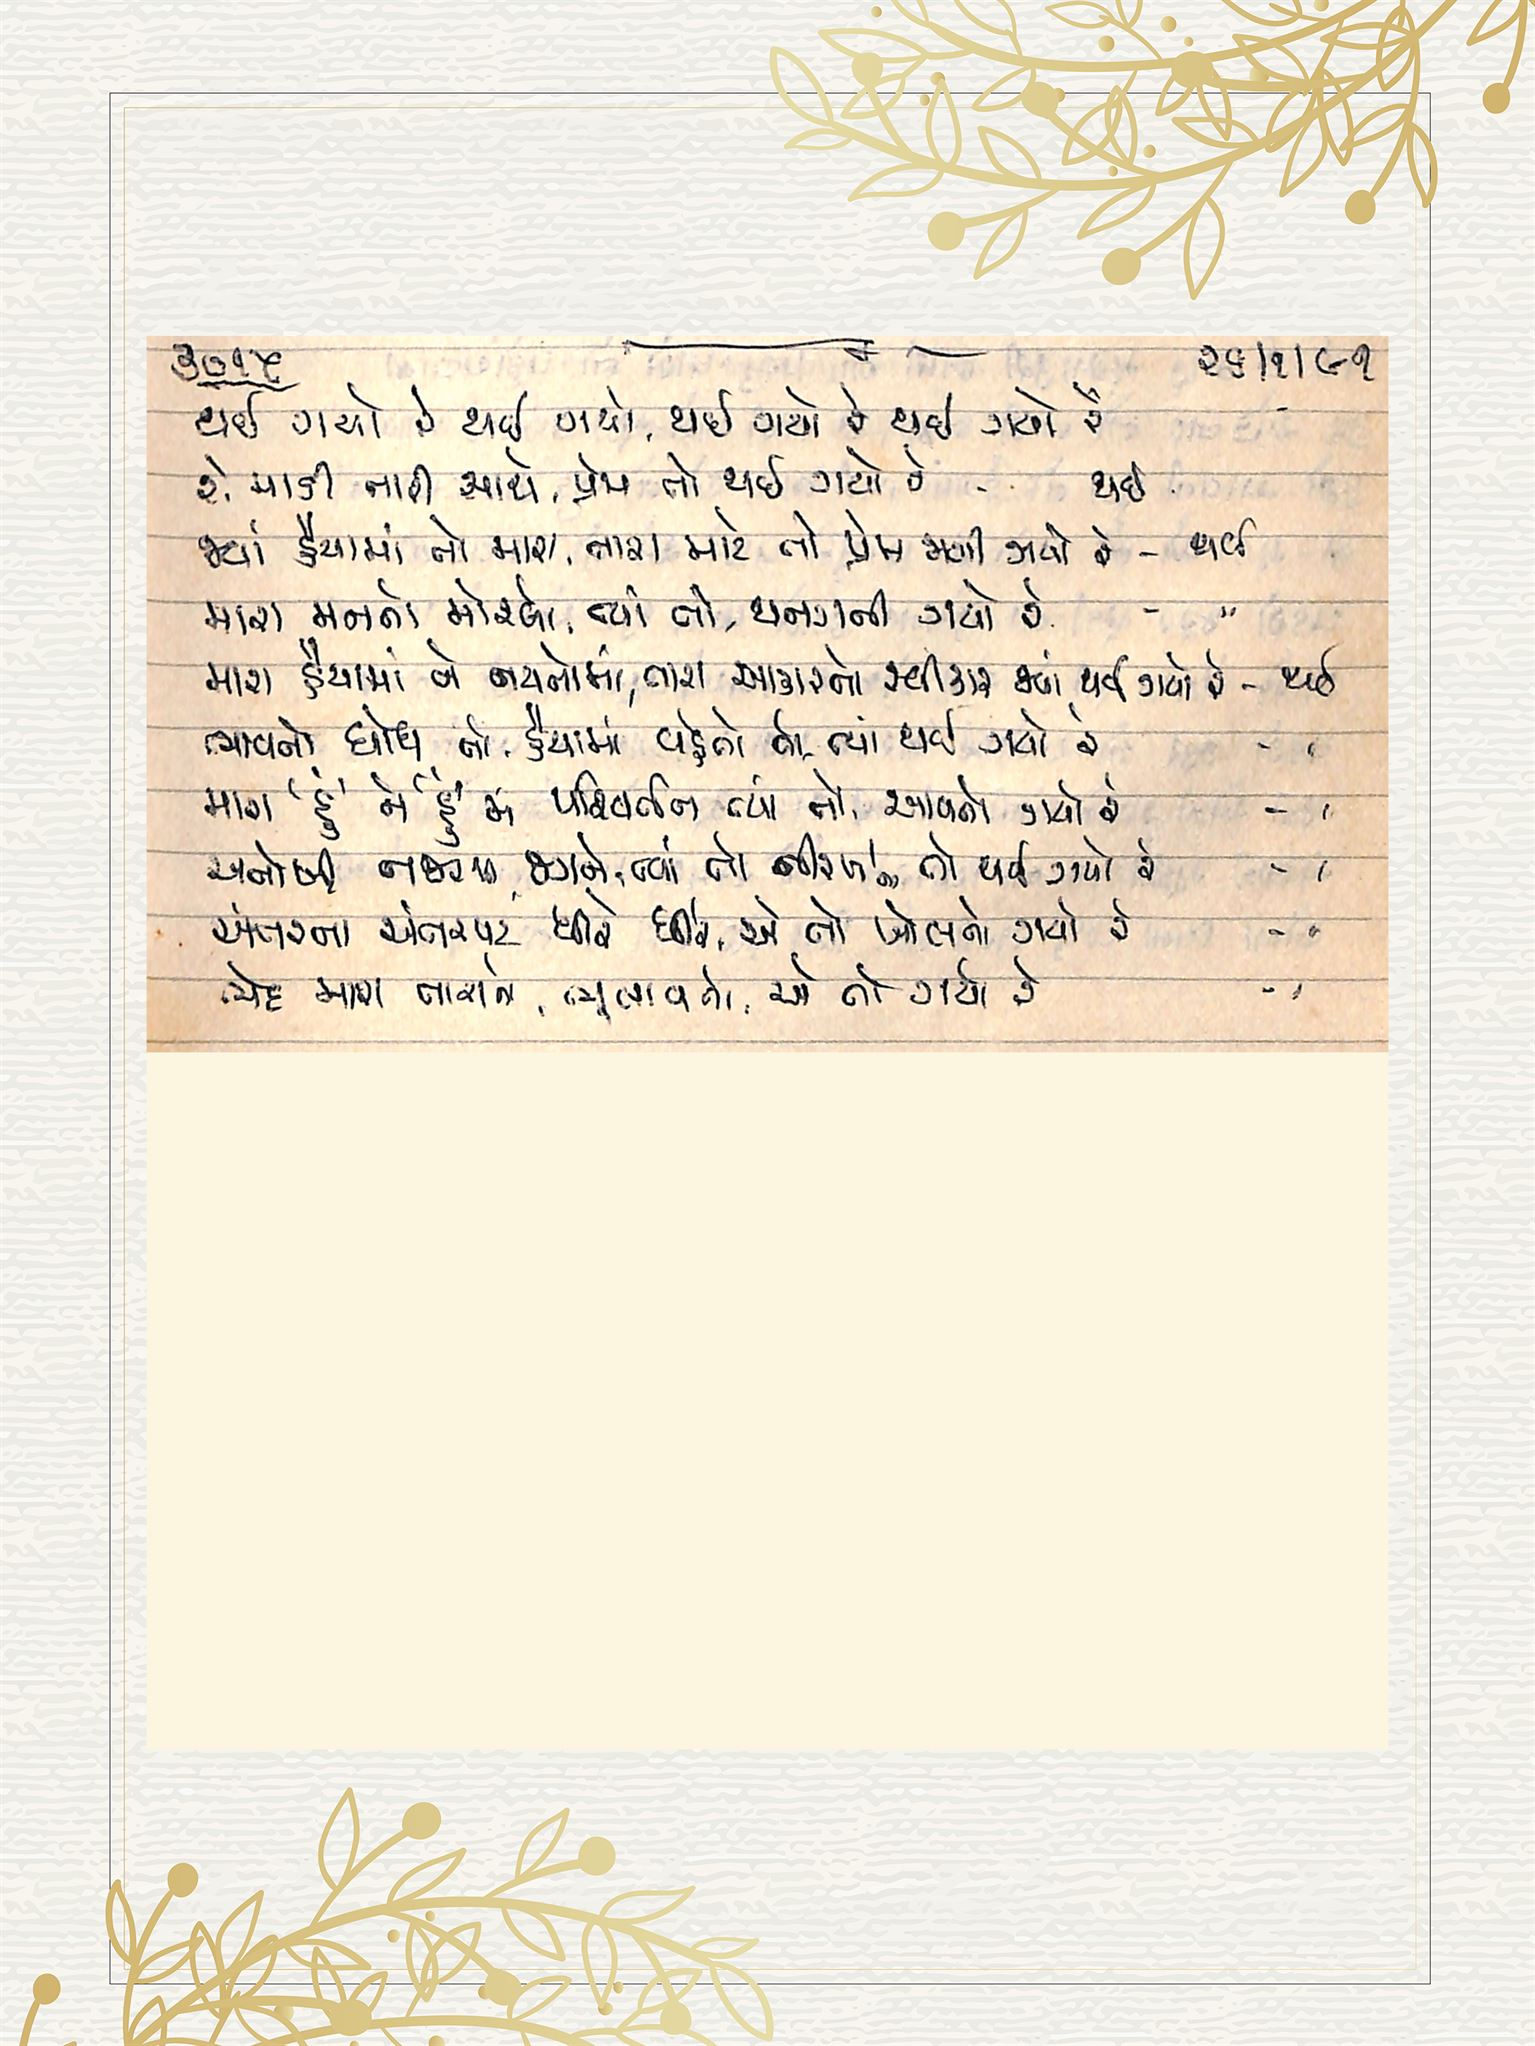 ૩૦૧૯ ૨૬/૧/૯૧
થઈ ગયો રે થઈ ગયો, થઈ ગયો રે થઈ ગયો રે
રે, માડી તારી સાથે, પ્રેમ તો થઈ ગયો રે - થઈ
જ્યાં હૈયામાં તો મારા, તારા માટે તો પ્રેમ જાગી ગયો રે - થઈ
મારા મનનો મોરલો, ત્યાં તો, થનગની ગયો રે - "
મારા હૈયામાં ને નયનોમાં, તારા આકારનો સ્વીકાર જ્યાં થઈ ગયો રે - થઈ
ભાવનો ધોધ તો, હૈયામાં વહેતો તો, ત્યાં થઈ ગયો રે - "
મારા 'હું' ને 'હું' માં પરિવર્તન ત્યાં તો, આવતો ગયો રે - "
અનોખી નજરથી જગને, ત્યાં તો નીરખતો તો થઈ ગયો રે - "
અંતરના અંતરપટ ધીરે ધીરે, એ તો ખોલતો ગયો રે - "
ભેદ મારા તારાને, ભુલાવતો, એ તો ગયો રે - "